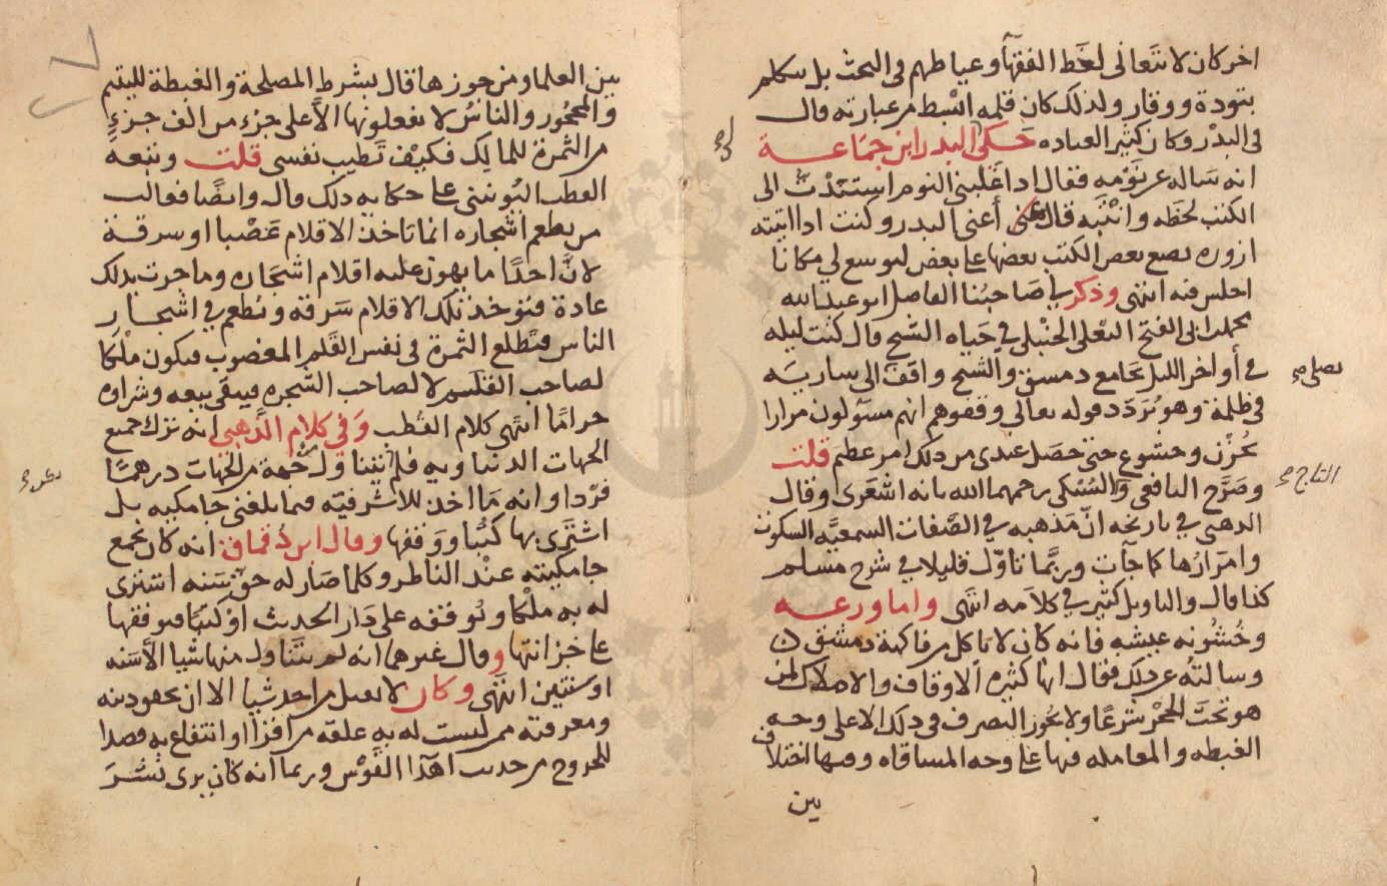 اخر كان لا يتعانى لغط الفقهآ وعياطهم فى البحث بل يتكلم
بتودة ووقار ولذلك كان قلمه ابسط من عبارته وقال
لى البدر وكان كثير العباده حكى البدر ابن جماعة
انه ساله عن نومه فقال اذا غلبنى النوم استندت الى
الكتب لحظه وانتبه قال عنى أعنى البدر وكنت اذا اتيته
ازوره يضع بعض الكتب بعضها على بعض ليوسع لى مكانا
اجلس فيه انتهى وذكر لى صاحبنا الفاضل ابو عبد الله
محمد ابن ابى الفتح البعلى الحنبلى فى حياه الشيخ قال كنت ليله
فى أواخر الليل بجامع دمشق والشيخ واقف الى ساريه
يصلى صح
فى ظلمة وهو يُردّد قوله تعالى وقفوهم انهم مسؤلون مرارا
بحُزن وخشوع حتى حصل عندى من ذلك امر عظيم قلت
وصرّح اليافعى والسُبكى رحمهما الله بانه اشعرى وقال
التاج صح
الذهبى فى تاريخه انّ مذهبه فى الصّفات السمعيّه السكوت
وامرارُها كما جآت وربّما تأوّل قليلا فى شرح مسلم
كذا قال والتاويل كثير فى كلامه انتهى واما ورعـــه
وخُشونه عيشه فانه كان لا ياكل من فاكهة دمشق
وسالتهُ عن ذلك فقال انها كثيره الاوقاف والاملاك لمن
هو تحت الحجْر شرعًا ولا يجوز التصرف فى ذلك الا على وجه
الغبطه والمعامله فيها على وجه المساقاه وفيها اختلاف
بين
بين العلما ومن جوزها قال بشرط المصلحة والغبطة لليتيم
والمحجُور والناسُ لا يفعلونها الا على جزء من الف جزءٍ
من الثمرة للمالك فكيْف تَطيب نفسى قلت وتبعه
القطب اليُونينى على حكايه ذلك وقال وايضًا فغالب
من يطعم اشجاره انما ياخذ الاقلام غصْبا او سرقـة
لانّ احدًا ما يهون عليه اقلام اشجاره وما جرت بذلك
عادة فتؤخذ تلك الاقلام سَرقه وتُطعم فى اشجـار
الناس فتَطلع الثمرة فى نفس القَلم المغصوب فيكون ملْكا
لصاحب القلـم لا لصاحب الشجره فيبقى بيعه وشراوه
حرامًا انتهى كلام القُطب وَفى كلام الذّهبى انه ترك جميع
الجهات الدنياويه فلم يتناول من جهة من الجهات درهمًا
فرْدا وانه مَا اخذ للاشرفيّه فيما بلغنى جامكيه بل
اشترى بها كتُبا ووَقفها وقال ابن دُقماق انه كان يجمع
جامكيته عنْد الناظر وكلما صَار له حقّ سَنه اشترى
له به ملْكا ويُوقفه على دَار الحديث اوْ كتبًا فيوقفها
على خزانتها وقال غيرهما انه لم يتناول منها شيا الا سنه
او سنتين انتهى وكان لا يقبل من احد شيا الا ان تحقق دينه
ومعرفته ممن ليست له به علقه من اقرا او انتفاع به قصدا
للخروج من حديث اهدا القَوْس وربما انه كان يرى نشْرَ